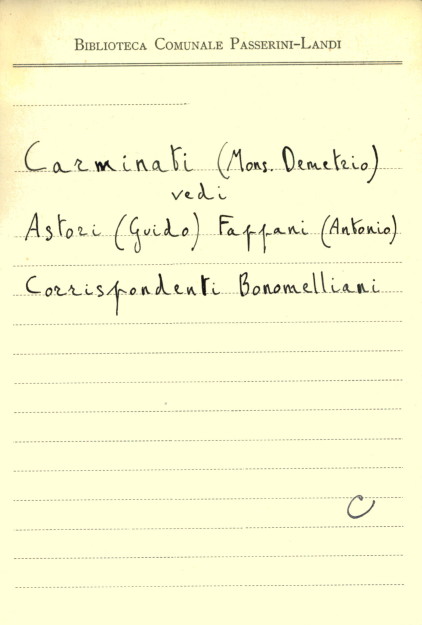 Biblioteca Comunale Passerini-Landi
Carminati (Mons. Demetrio)
vedi
Astori (Guido) Fappani (Antonio)
Corrispondenti Bonomelliani
C